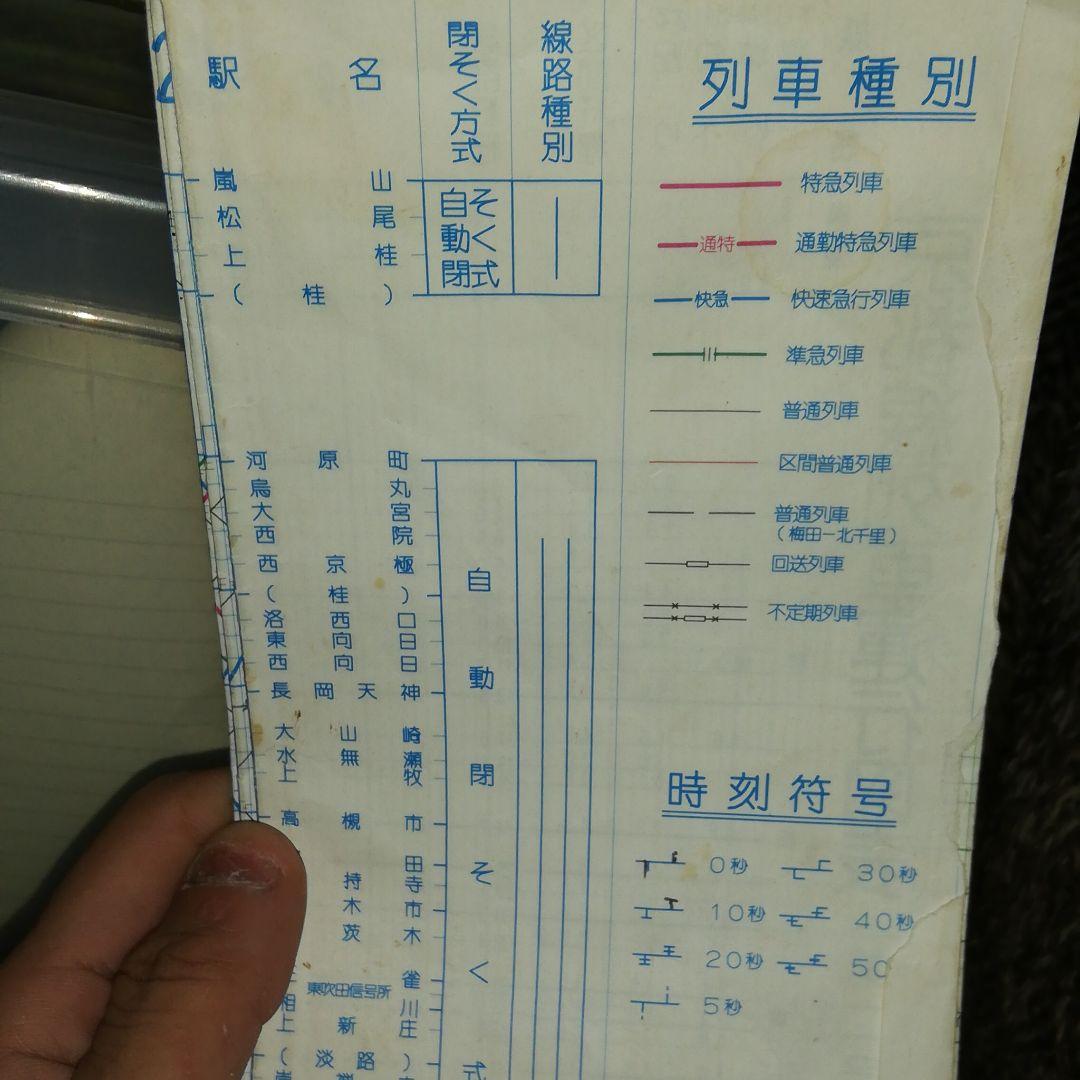 駅名
閉そく方式
線路種別
嵐山
松尾
上桂
(桂)
自動閉そく式
河原町
烏丸
大宮
西院
西京極
(桂)
洛西口
東向日
西向日
長岡天神
大山崎
水無瀬
上牧
高槻市
田
持寺
木市
茨木
雀
東吹田信号所
相川
上新庄
(淡路)
自動閉そく式
列車種別
特急列車
通特 通勤特急列車
快急 快速急行列車
準急列車
普通列車
区間普通列車
普通列車
(梅田ー北千里)
回送列車
不定期列車
時刻符号
0秒 30秒
10秒 40秒
20秒 50
5秒